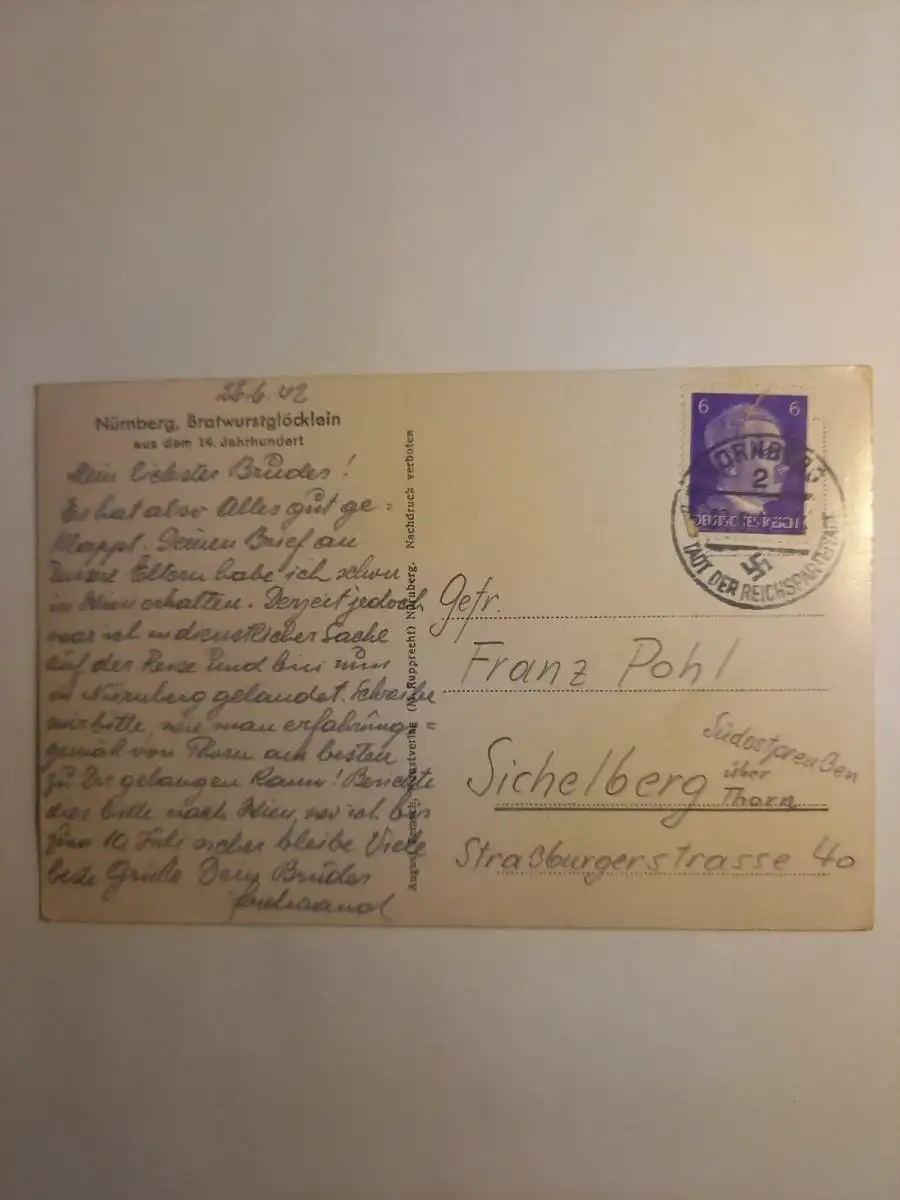 26.6.42
Nürnberg, Bratwurstglöcklein
aus dem 14. Jahrhundert
Mein liebster Bruder!
Es hat also Alles gut ge=
klappt. Deinen Brief an
unsere Eltern habe ich schon
in Wien erhalten. Derzeit jedoch
war ich in dienstlicher Sache
auf der Reise und bin nun
in Nürnberg gelandet. Schreibe
mir bitte, wie man erfahrungs=
gemäß von Thorn am besten
zu Dir gelangen kann! Berichte
dies bitte nach Wien, wo ich bis
zum 10. Juli sicher bleibe Viele
beste Grüße Dein Bruder
Ferdinand
Kunstverlag (M. Rupprecht) Nürnberg. Nachdruck verboten
6 6
DEUTSCHES REICH
NÜRNBERG
2
STADT DER REICHSPARTEITAGE
Gefr.
Franz Pohl
Sichelberg
Südostpreußen
über
Thorn
Straßburgerstrasse 40